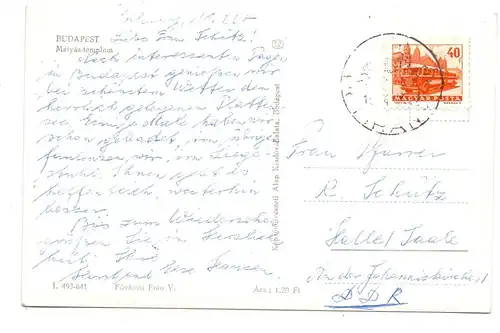 BUDAPEST
Mátyás-templom
Liebe Frau Schütz!
Nach interessanten Tagen
in Budapest genießen wir
bei schönstem Wetter den
herrlich gelegenen Platten-
see. Einige Male haben wir
schon gebadet, im übrigen
wir im Liege-
stuhl. Ihnen geht es
hoffentlich weiterhin
besser.
Bis zum Wiedersehen
grüßen Sie in Herzlich-
keit Ihre
1. 493-641
Fővárosi Foto V.
Ára: 1,20 Ft
Képzőművészeti Alap Kiadóvállalata, Budapest
40
MAGYAR POSTA
Frau Pfarrer
R. Schütz
Halle / Saale
An der Johanniskirche 1
DDR